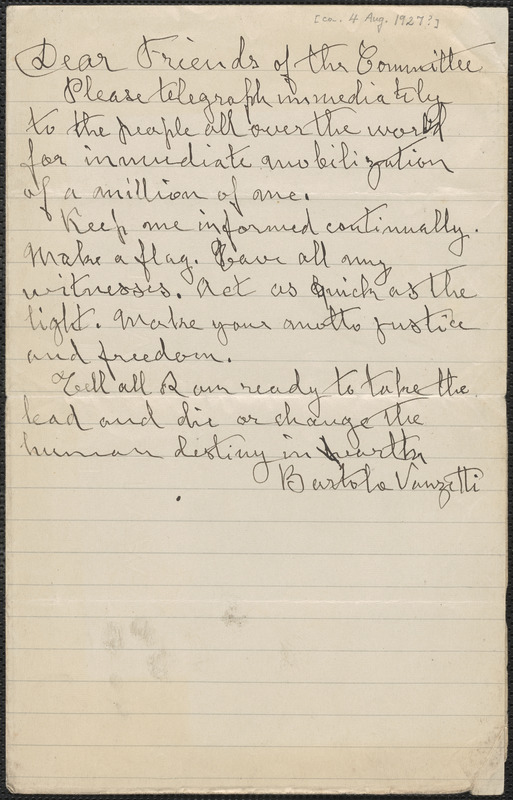 [ca. 4 Aug. 1927?]
Dear Friends of the Committee
Please telegraph immediately
to the people all over the world
for immediate mobilization
of a million of me.
Keep me informed continually.
Make a flag. Save all my
witnesses. Act as quick as the
light. Make your motto justice
and freedom.
Tell all I am ready to take the
lead and die or change the
human destiny in hearth
Bartolo Vanzetti